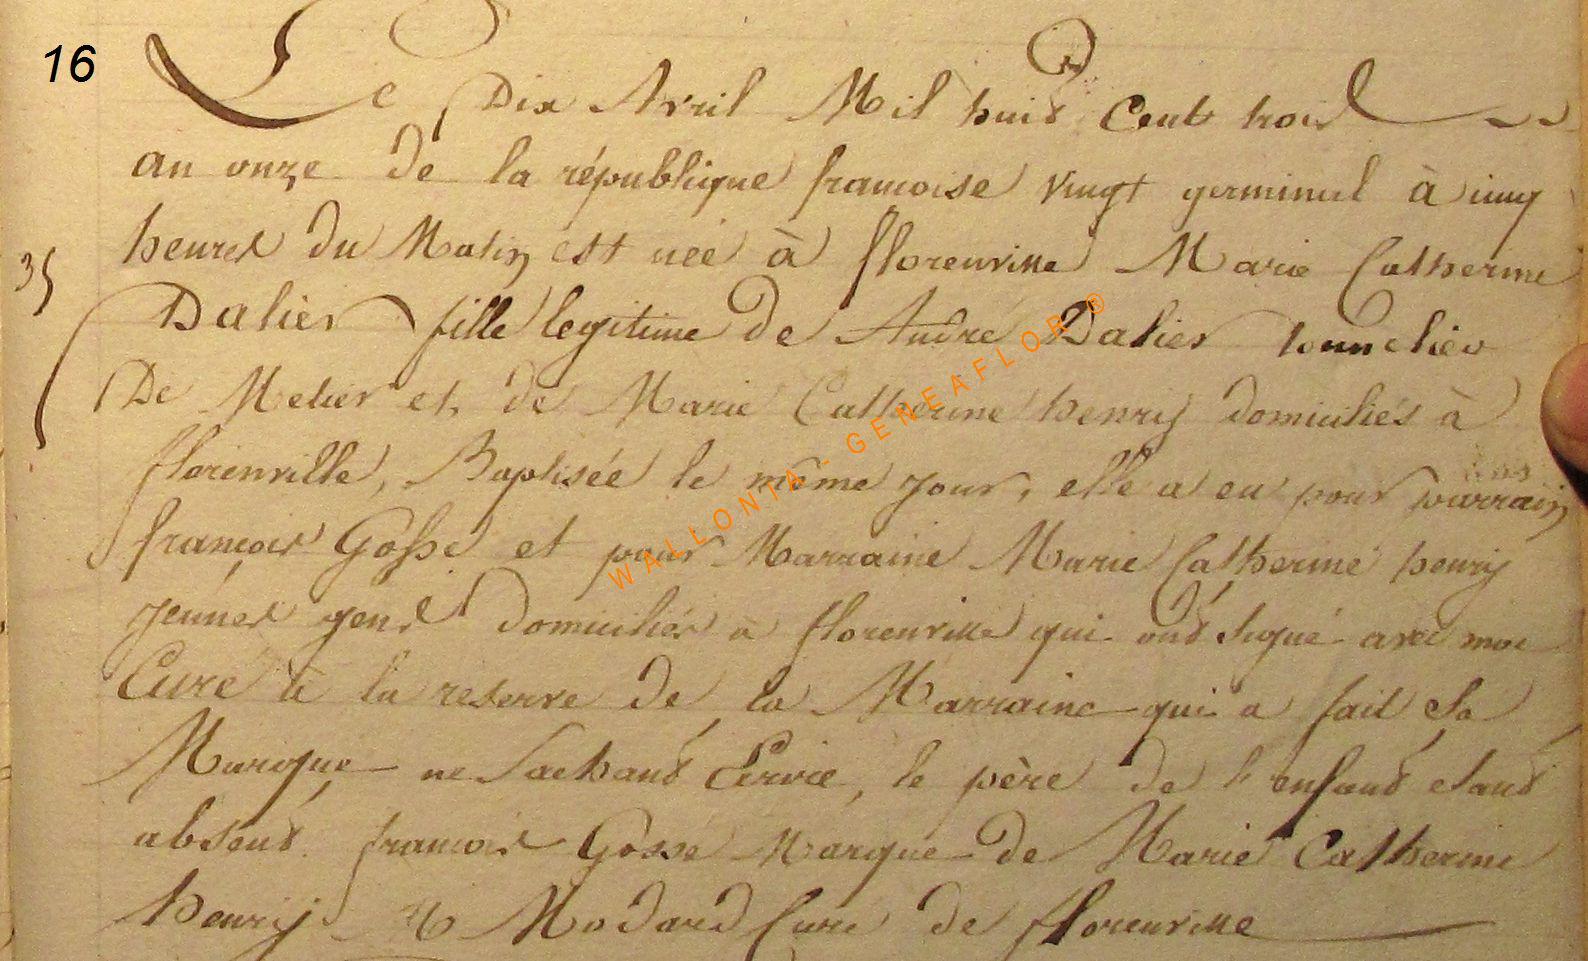 16
Le Dix Avril Mil huit Cent trois
an onze de la république francoise vingt germinal à cinq
heures du Matin est née à florenville Marie Catherine
35
Dalier fille legitime de André Dalier tonnelier
De Metier et de Marie Catherine henrij domiciliés à
florenville, Baptisée le même jour, elle a eu pour parrain
françois Gosse et pour Marraine Marie Catherine henrij
jeunes gens domiciliés à florenville qui ont signé avec moi
Curé à la reserve de la Marraine qui a fait sa
Marque ne Sachant Ecrire, le père de l'enfant etant
absent. francois Gosse Marque de Marie Catherine
henrij Modard Curé de florenville
WALLONIA - GENEAFLOR ®